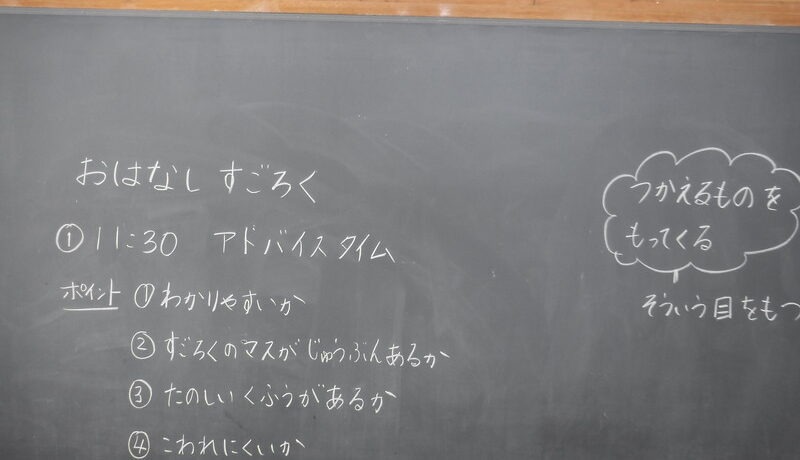 おはなし すごろく
① 11:30 アドバイスタイム
ポイント ① わかりやすいか
② すごろくのマスが じゅうぶんあるか
③ たのしい くふうがあるか
④ こわれにくいか
つかえるものを
もってくる
そういう目をもつ